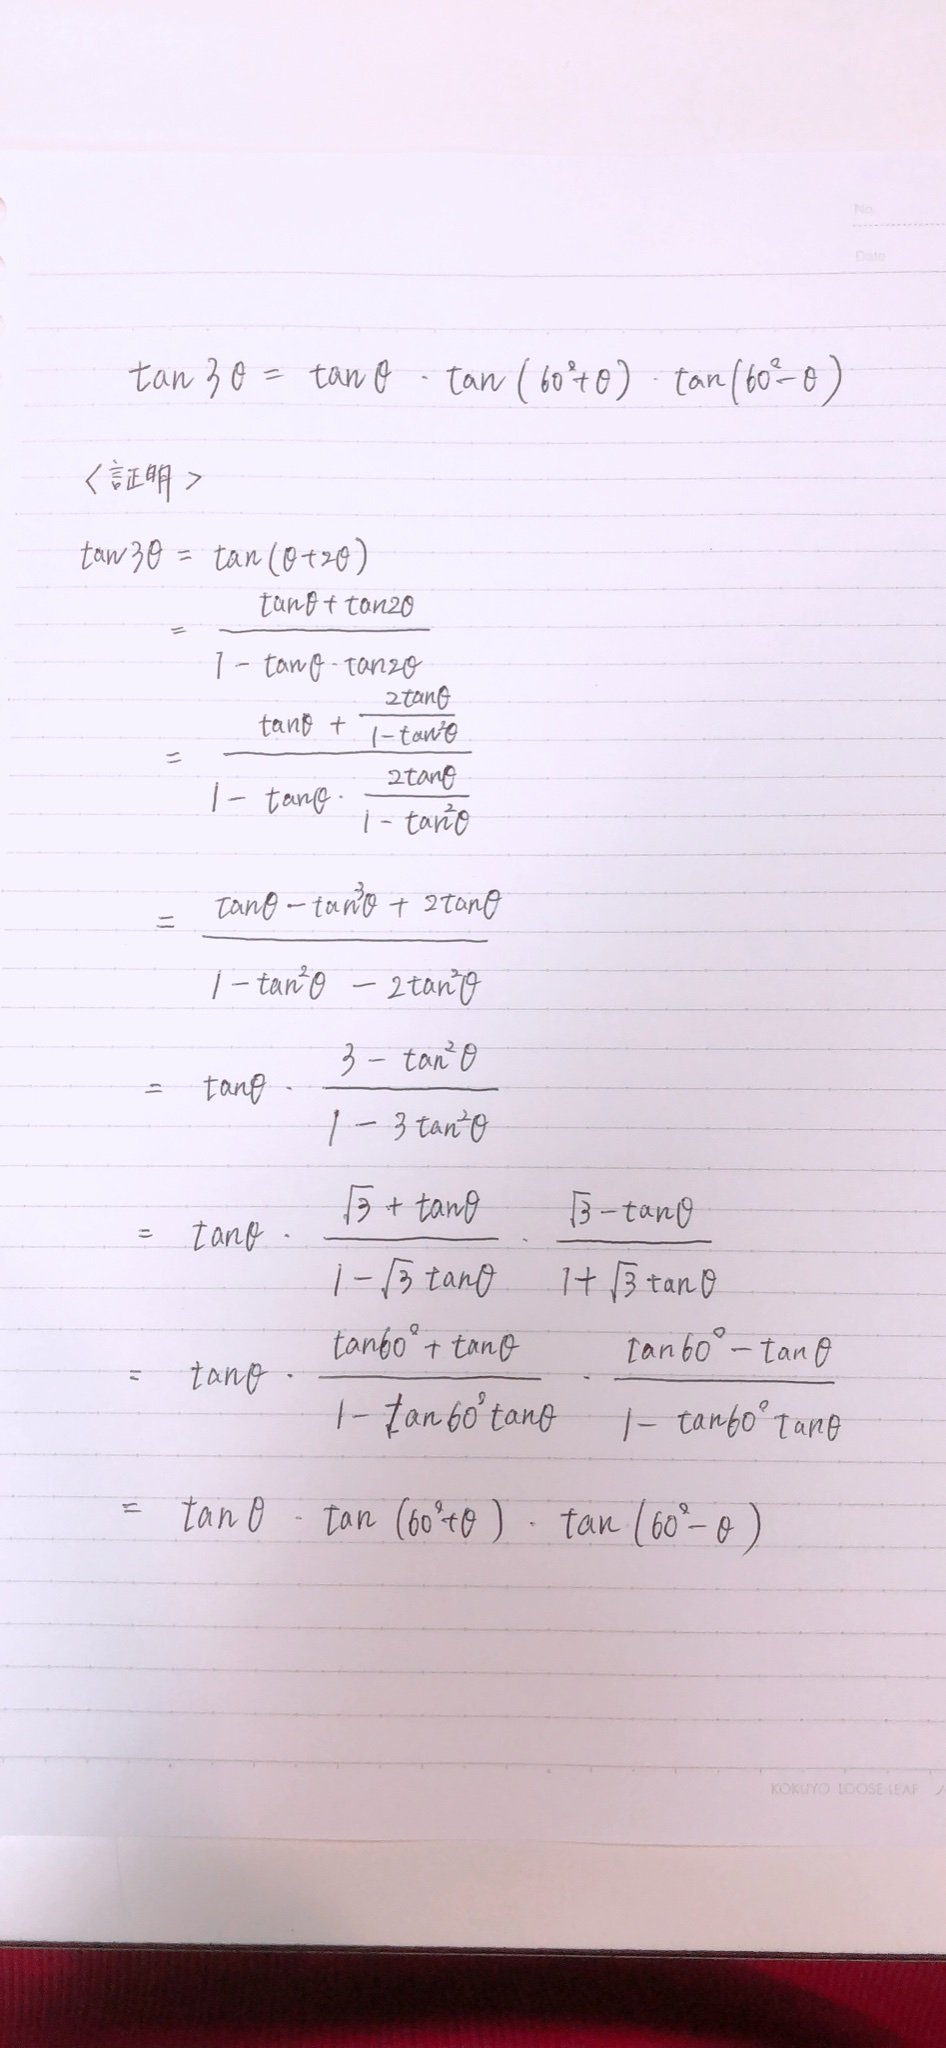 No.
Date
tan3θ = tanθ · tan(60°+θ) · tan(60°−θ)
<証明>
tan3θ = tan(θ+2θ)
= (tanθ + tan2θ) / (1 − tanθ · tan2θ)
= (tanθ + 2tanθ/(1−tan²θ)) / (1 − tanθ · 2tanθ/(1−tan²θ))
= (tanθ − tan³θ + 2tanθ) / (1 − tan²θ − 2tan²θ)
= tanθ · (3 − tan²θ) / (1 − 3tan²θ)
= tanθ · (√3 + tanθ) / (1 − √3tanθ) · (√3 − tanθ) / (1 + √3tanθ)
= tanθ · (tan60° + tanθ) / (1 − tan60°tanθ) · (tan60° − tanθ) / (1 − tan60°tanθ)
= tanθ · tan(60°+θ) · tan(60°−θ)
KOKUYO LOOSE-LEAF